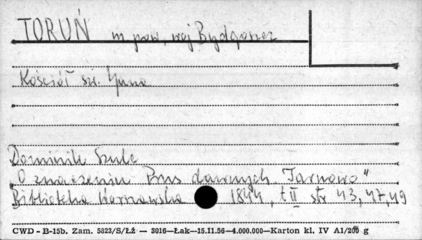 TORUŃ m. pow., woj Bydgoszcz
Kościół św. Jana
Dominik Szulc
"O znaczeniu Prus dawnych, Tarnowo"
Biblioteka Warszawska 1844, t II str 43, 47, 49
CWD - B-15b. Zam. 5823/S/Łź — 3016—Łak—15.11.56—4.000.000—Karton kl. IV A1/200 g